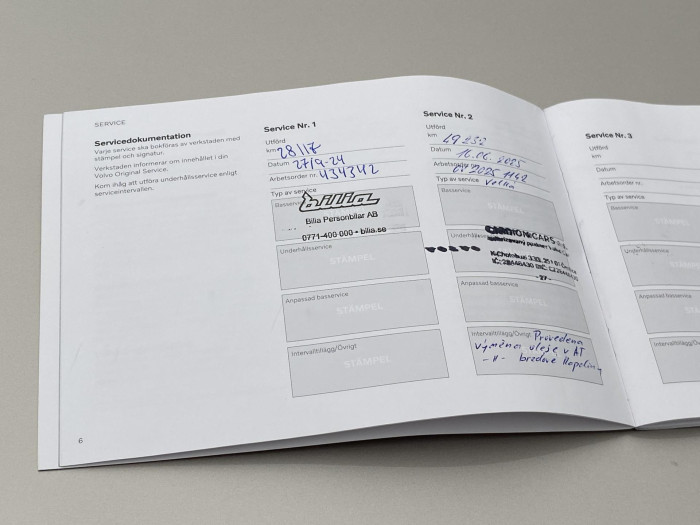 SERVICE
Servicedokumentation
Varje service ska bokföras av verkstaden med
stämpel och signatur.
Verkstaden informerar om innehållet i din
Volvo Original Service.
Kom ihåg att utföra underhållsservice enligt
serviceintervallen.
6
Service Nr. 1
Utförd
km 28117
Datum 27/9-24
Arbetsorder nr. 434342
Typ av service
Basservice
bilia
Bilia Personbilar AB
0771-400 000 • bilia.se
Underhållsservice
STÄMPEL
Anpassad basservice
STÄMPEL
Intervalltillägg/Övrigt
STÄMPEL
Service Nr. 2
Utförd
km
Datum 16.06.2025
Arbetsorder nr.
Typ av service Velká
Basservice
STÄMPEL
Underhållsservice
CARS
VOLVO
- 27 -
Anpassad basservice
STÄMPEL
Intervalltillägg/Övrigt Provedena
výměna oleje v AT
-II- brzdové kapaliny
Service Nr. 3
Utförd
km
Datum
Arbetsorder nr.
Typ av service
Basservice
STÄMPEL
Underhållsservice
STÄMPEL
Anpassad basservice
STÄMPEL
Intervalltillägg/Övrigt